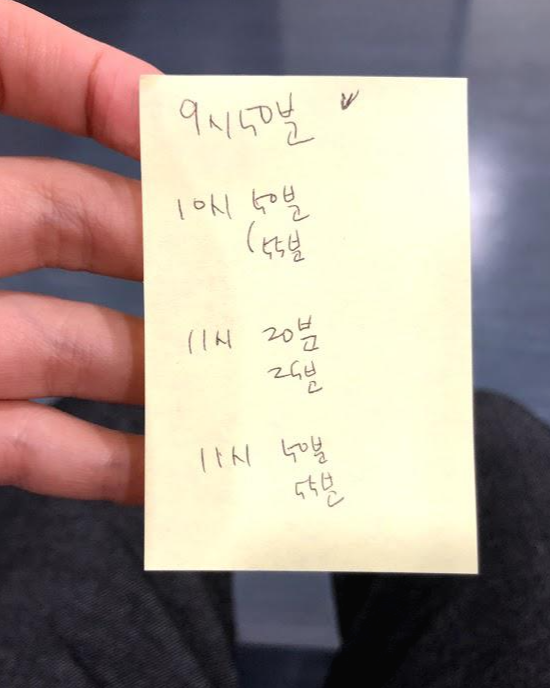 9시50분 ✓
10시 50분
(55분
11시 20분
25분
11시 50분
55분